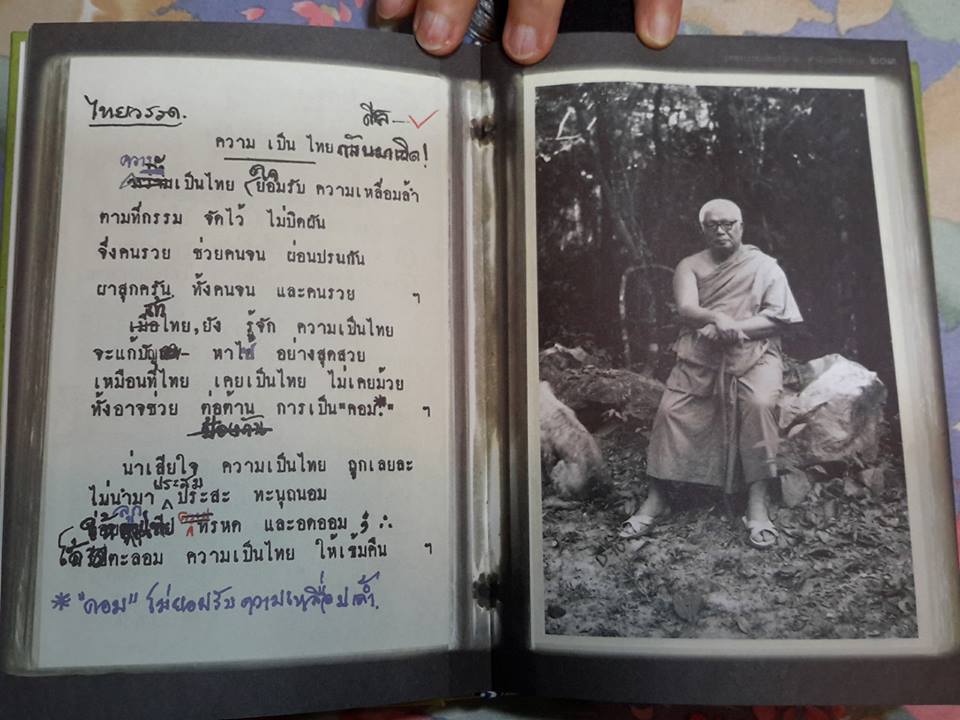 ไทยวรรด.
ศีล — ✓
ความ เป็น ไทย กลับมาเถิด!
ความเป็นไทย ใจยอมรับ ความเหลื่อมล้ำ
ตามที่กรรม จัดไว้ ไม่บิดผัน
จึ่งคนรวย ช่วยคนจน ผ่อนปรนกัน
ผาสุกครัน ทั้งคนจน และคนรวย ฯ
ไทย, ยัง รู้จัก ความเป็นไทย
จะแก้ปัญ- หาได้ อย่างสุดสวย
เหมือนที่ไทย เคยเป็นไทย ไม่เคยม้วย
ทั้งอาจช่วย ต่อต้าน การเป็น"คอม*" ฯ
ป้องกัน
น่าเสียใจ ความเป็นไทย ถูกเลยละ
ไม่นำมา ประสม ประสะ ทะนุถนอม
ลูก ทรหด และอดออม
ตะลอม ความเป็นไทย ให้เข้มคืน ฯ
* "คอม" ไม่ยอมรับความเหลื่อมล้ำ.
๒๐๓